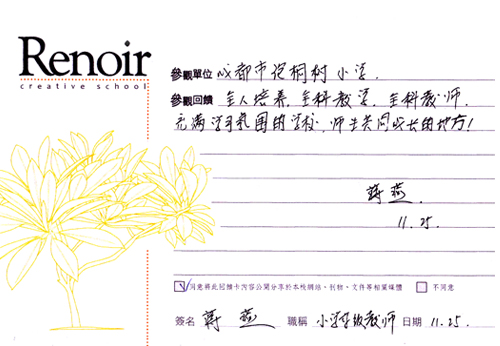 Renoir
creative school
參觀單位 成都市泡桐树小学.
參觀回饋 全人培养, 全科教学, 全科教师.
充满学习氛围的学校, 师生共同成长的地方!
蒋燕.
11.25.
同意將此回饋卡內容公開分享於本校網站、刊物、文件等相關媒體 不同意
簽名 蒋燕 職稱 小学高级教师 日期 11.25.